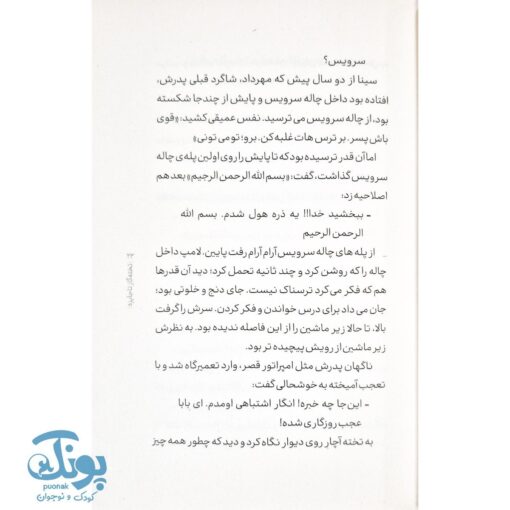 سرویس؟
سینا از دو سال پیش که مهرداد، شاگرد قبلی پدرش،
افتاده بود داخل چاله سرویس و پایش از چندجا شکسته
بود، از چاله سرویس می ترسید. نفس عمیقی کشید: «قوی
باش پسر. بر ترس هات غلبه کن. برو؛ تو می تونی»
اما آن قدر ترسیده بود که تا پایش را روی اولین پله ی چاله
سرویس گذاشت، گفت: «بسم الله الرحمن الرجیم» بعد هم
اصلاحیه زد:
- ببخشید خدا!! یه ذره هول شدم. بسم الله
الرحمن الرحیم
از پله های چاله سرویس آرام آرام رفت پایین. لامپ داخل
چاله را که روشن کرد و چند ثانیه تحمل کرد؛ دید آن قدرها
هم که فکر می کرد ترسناک نیست. جای دنج و خلوتی بود؛
جان می داد برای درس خواندن و فکر کردن. سرش را گرفت
بالا، تا حالا زیر ماشین را از این فاصله ندیده بود. به نظرش
زیر ماشین از رویش پیچیده تر بود.
ناگهان پدرش مثل امپراتور قصر، وارد تعمیرگاه شد و با
تعجب آمیخته به خوشحالی گفت:
- این جا چه خبره! انگار اشتباهی اومدم. ای بابا
عجب روزگاری شده!
به تخته آچار روی دیوار نگاه کرد و دید که چطور همه چیز
پونک
puonak
کودک و نوجوان